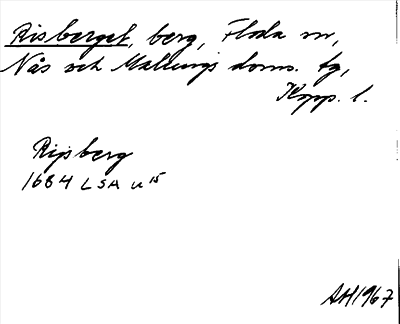 Risberget, berg, Floda sn,
Nås och Malungs doms. tg,
Kopp. l.
Ripsberg
1684 LSA u 15
AH 1967